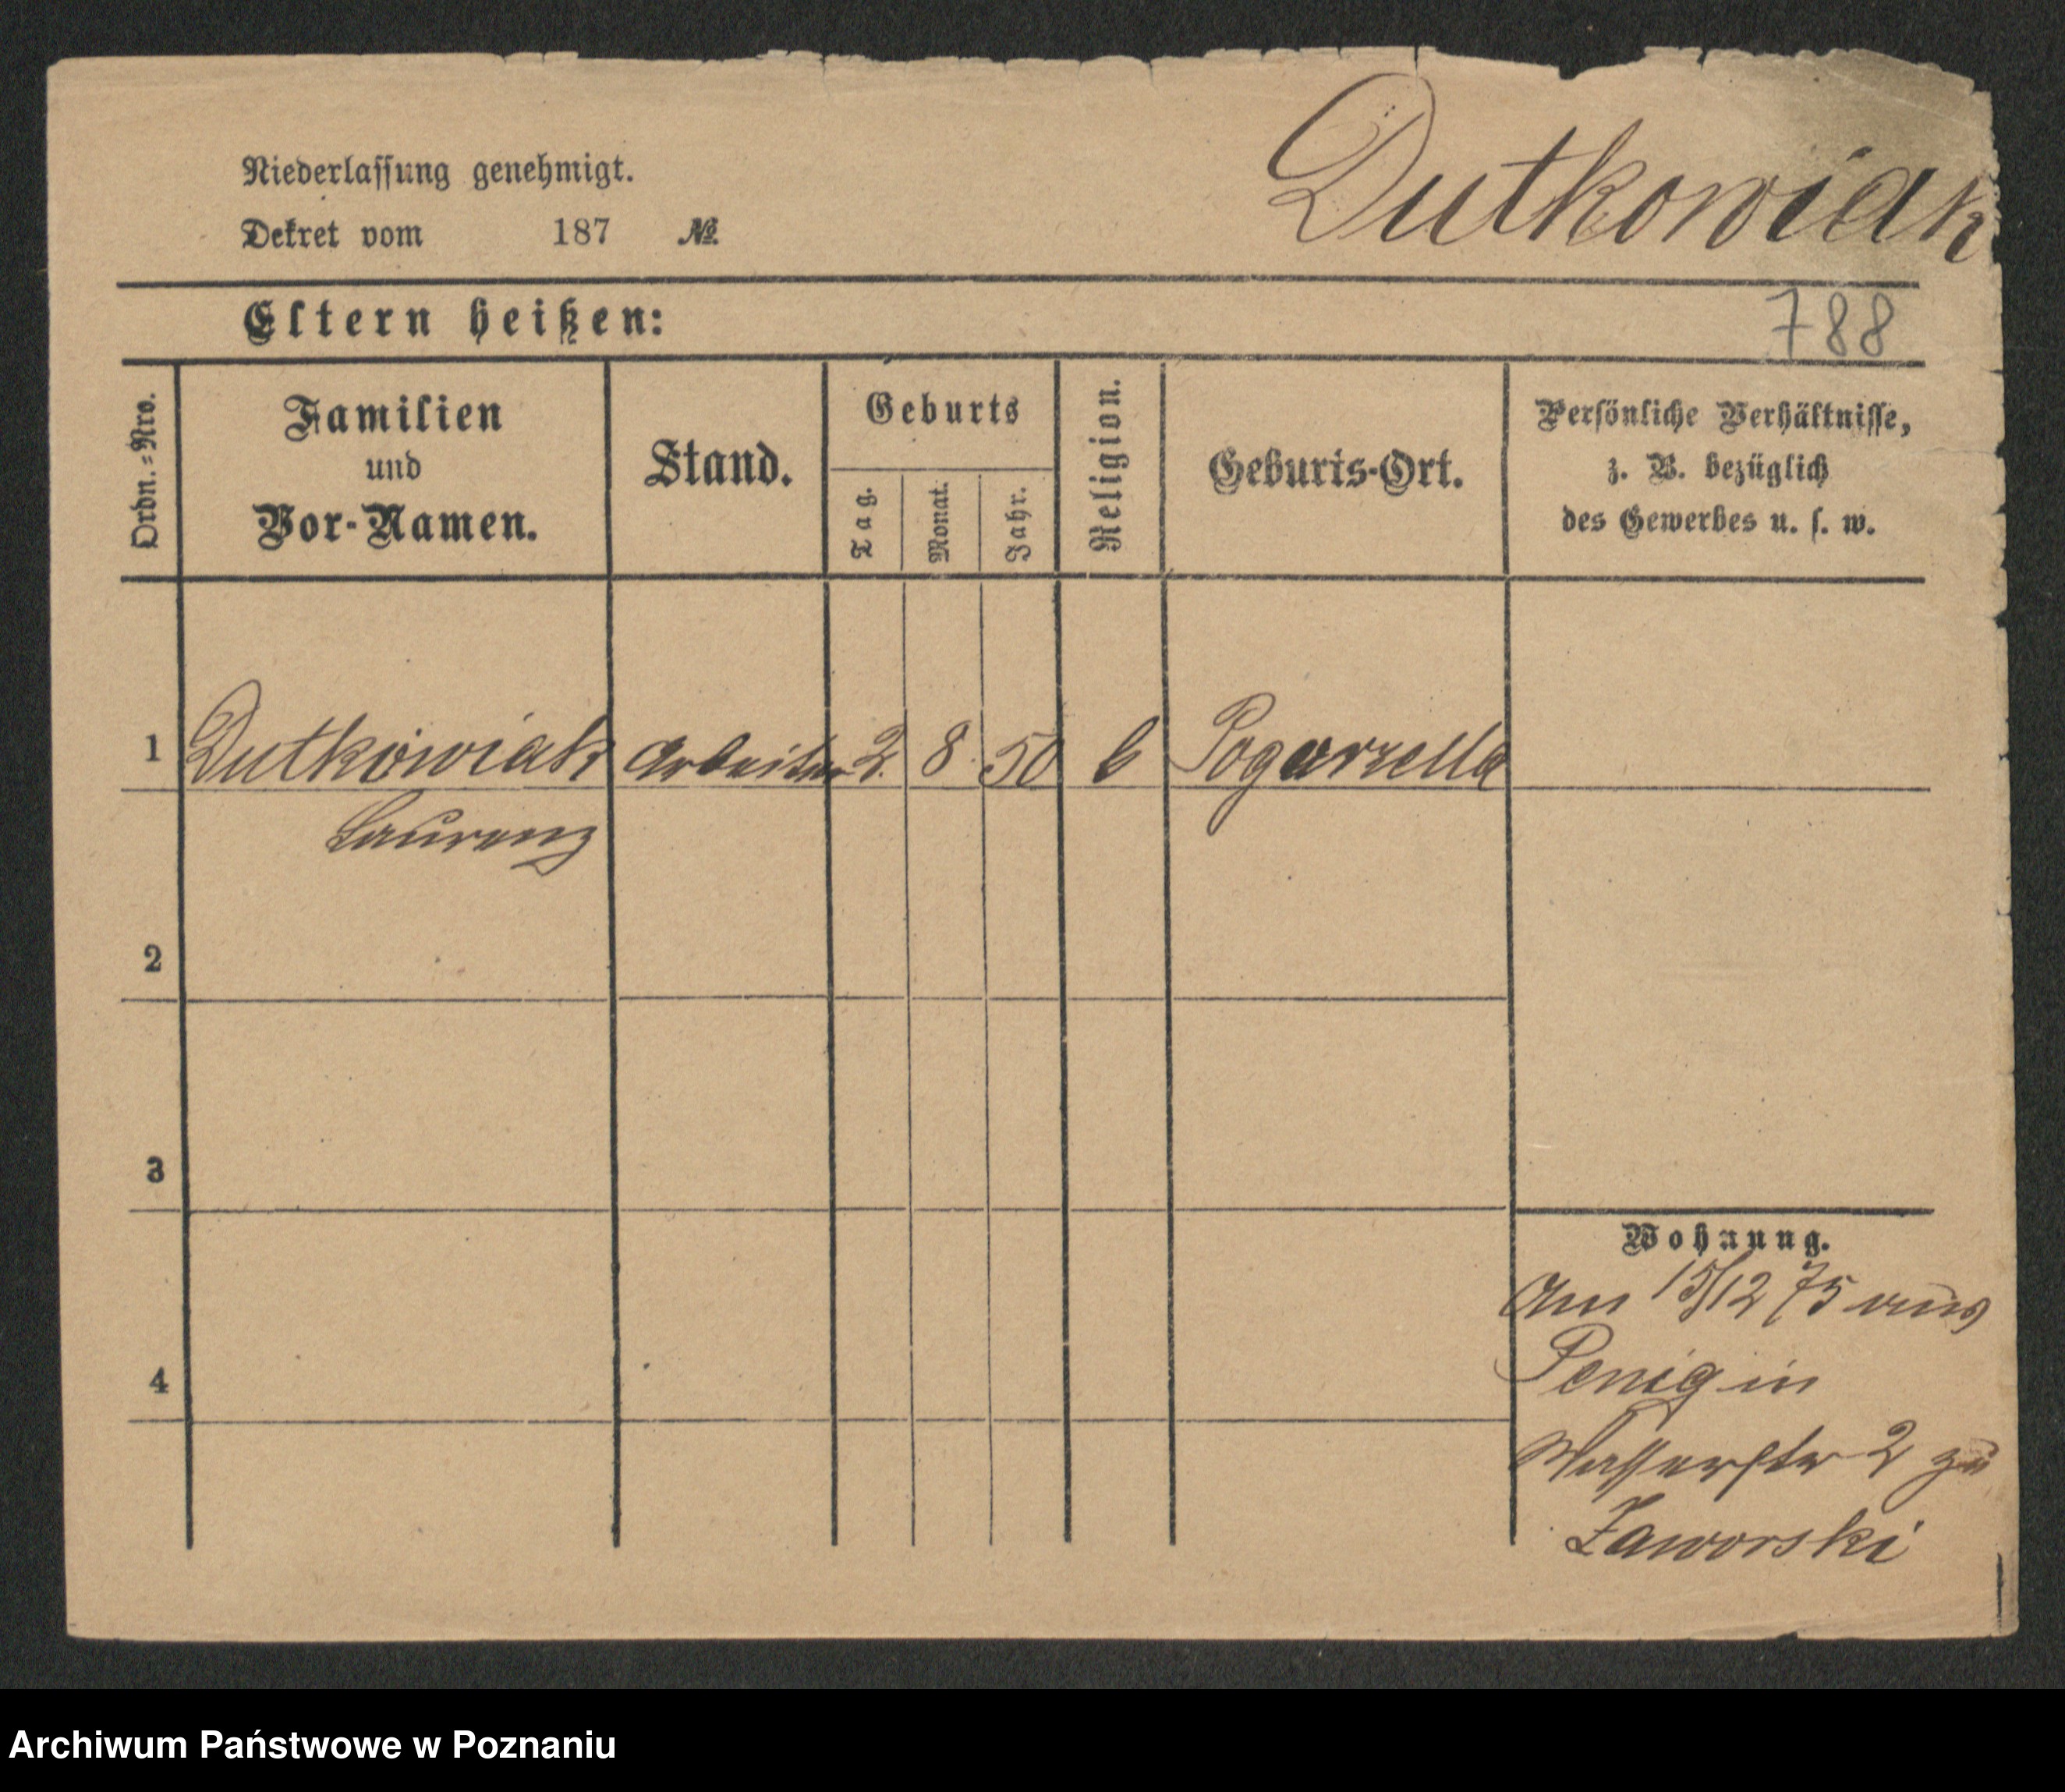 Dutkowiak
Niederlassung genehmigt.
Dekret vom 187 No.
Eltern heißen:
788
Ordn.=Nro.
Familien
und
Vor-Namen.
Stand.
Geburts
Tag.
Monat.
Jahr.
Religion.
Geburts-Ort.
Persönliche Verhältnisse,
z. B. bezüglich
des Gewerbes u. s. w.
1 Dutkowiak Arbeiter 2. 8. 50 Pogorzella
Laurenz
2
3
Wohnung.
Am 15/12 75 aus
Penig in
4
Wasserstr 2 zu
Jaworski
Archiwum Państwowe w Poznaniu